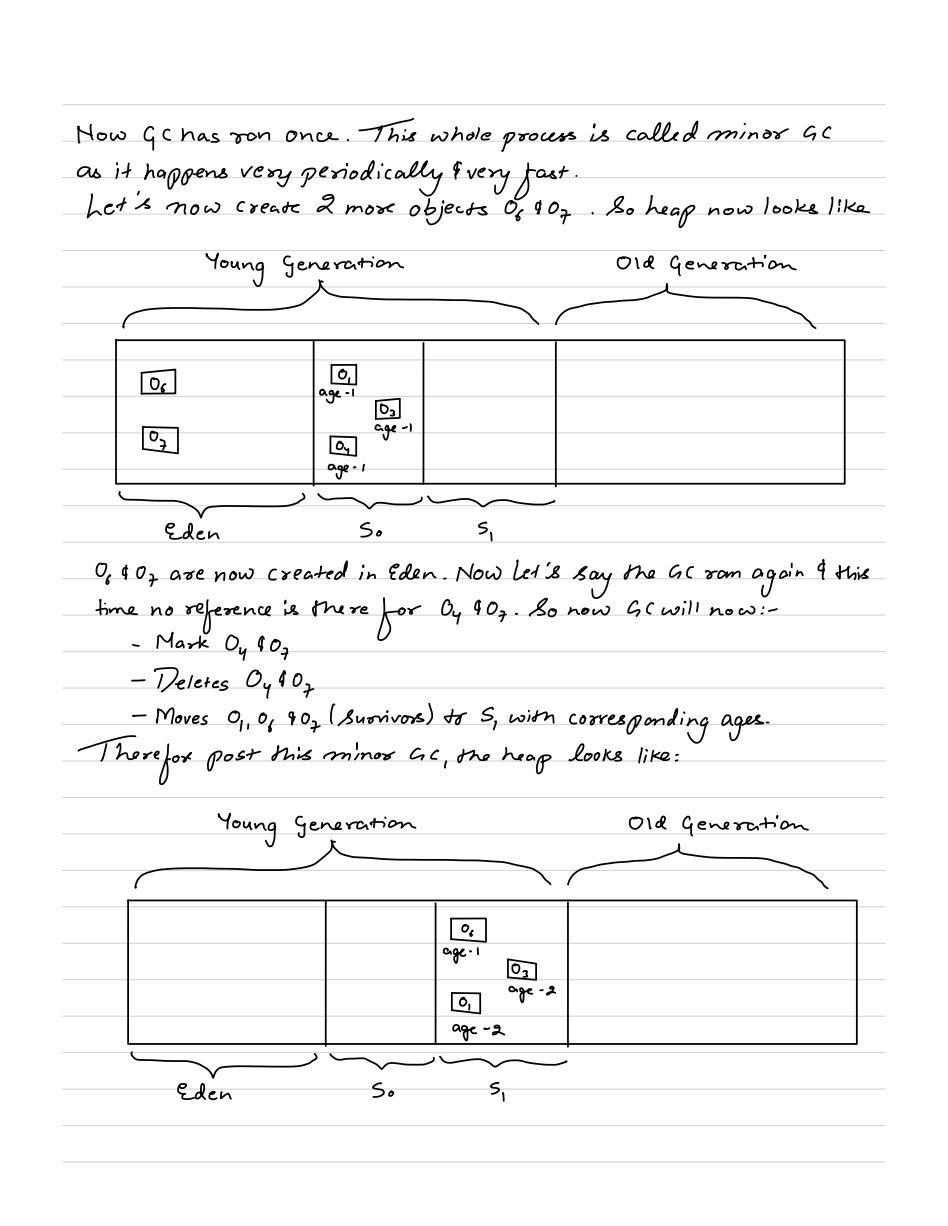 Now GC has ran once. This whole process is called minor GC
as it happens very periodically & very fast.
Let's now create 2 more objects O6 & O7. So heap now looks like
Young Generation Old Generation
O6 O1
age-1
O3
O7 age-1
O4
age-1
Eden S0 S1
O6 & O7 are now created in Eden. Now Let's say the GC ran again & this
time no reference is there for O4 & O7. So now GC will now:-
- Mark O4 & O7
- Deletes O4 & O7
- Moves O1, O6 & O7 (survivors) to S1 with corresponding ages.
Therefor post this minor GC, the heap looks like:
Young Generation Old Generation
O6
age-1
O3
age-2
O1
age-2
Eden S0 S1